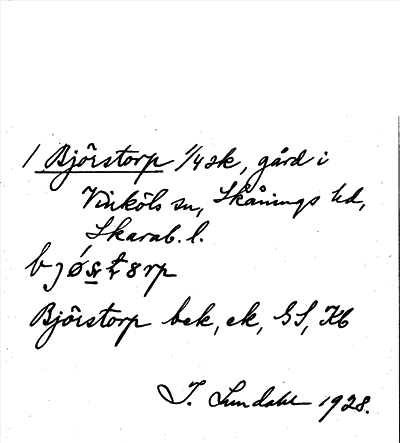 1 Björstorp 1/4 sk, gård i
Vinköls sn, Skånings hd,
Skarab. l.
Björstorp bek, ek, GS, Kb
I. Lundahl 1928.